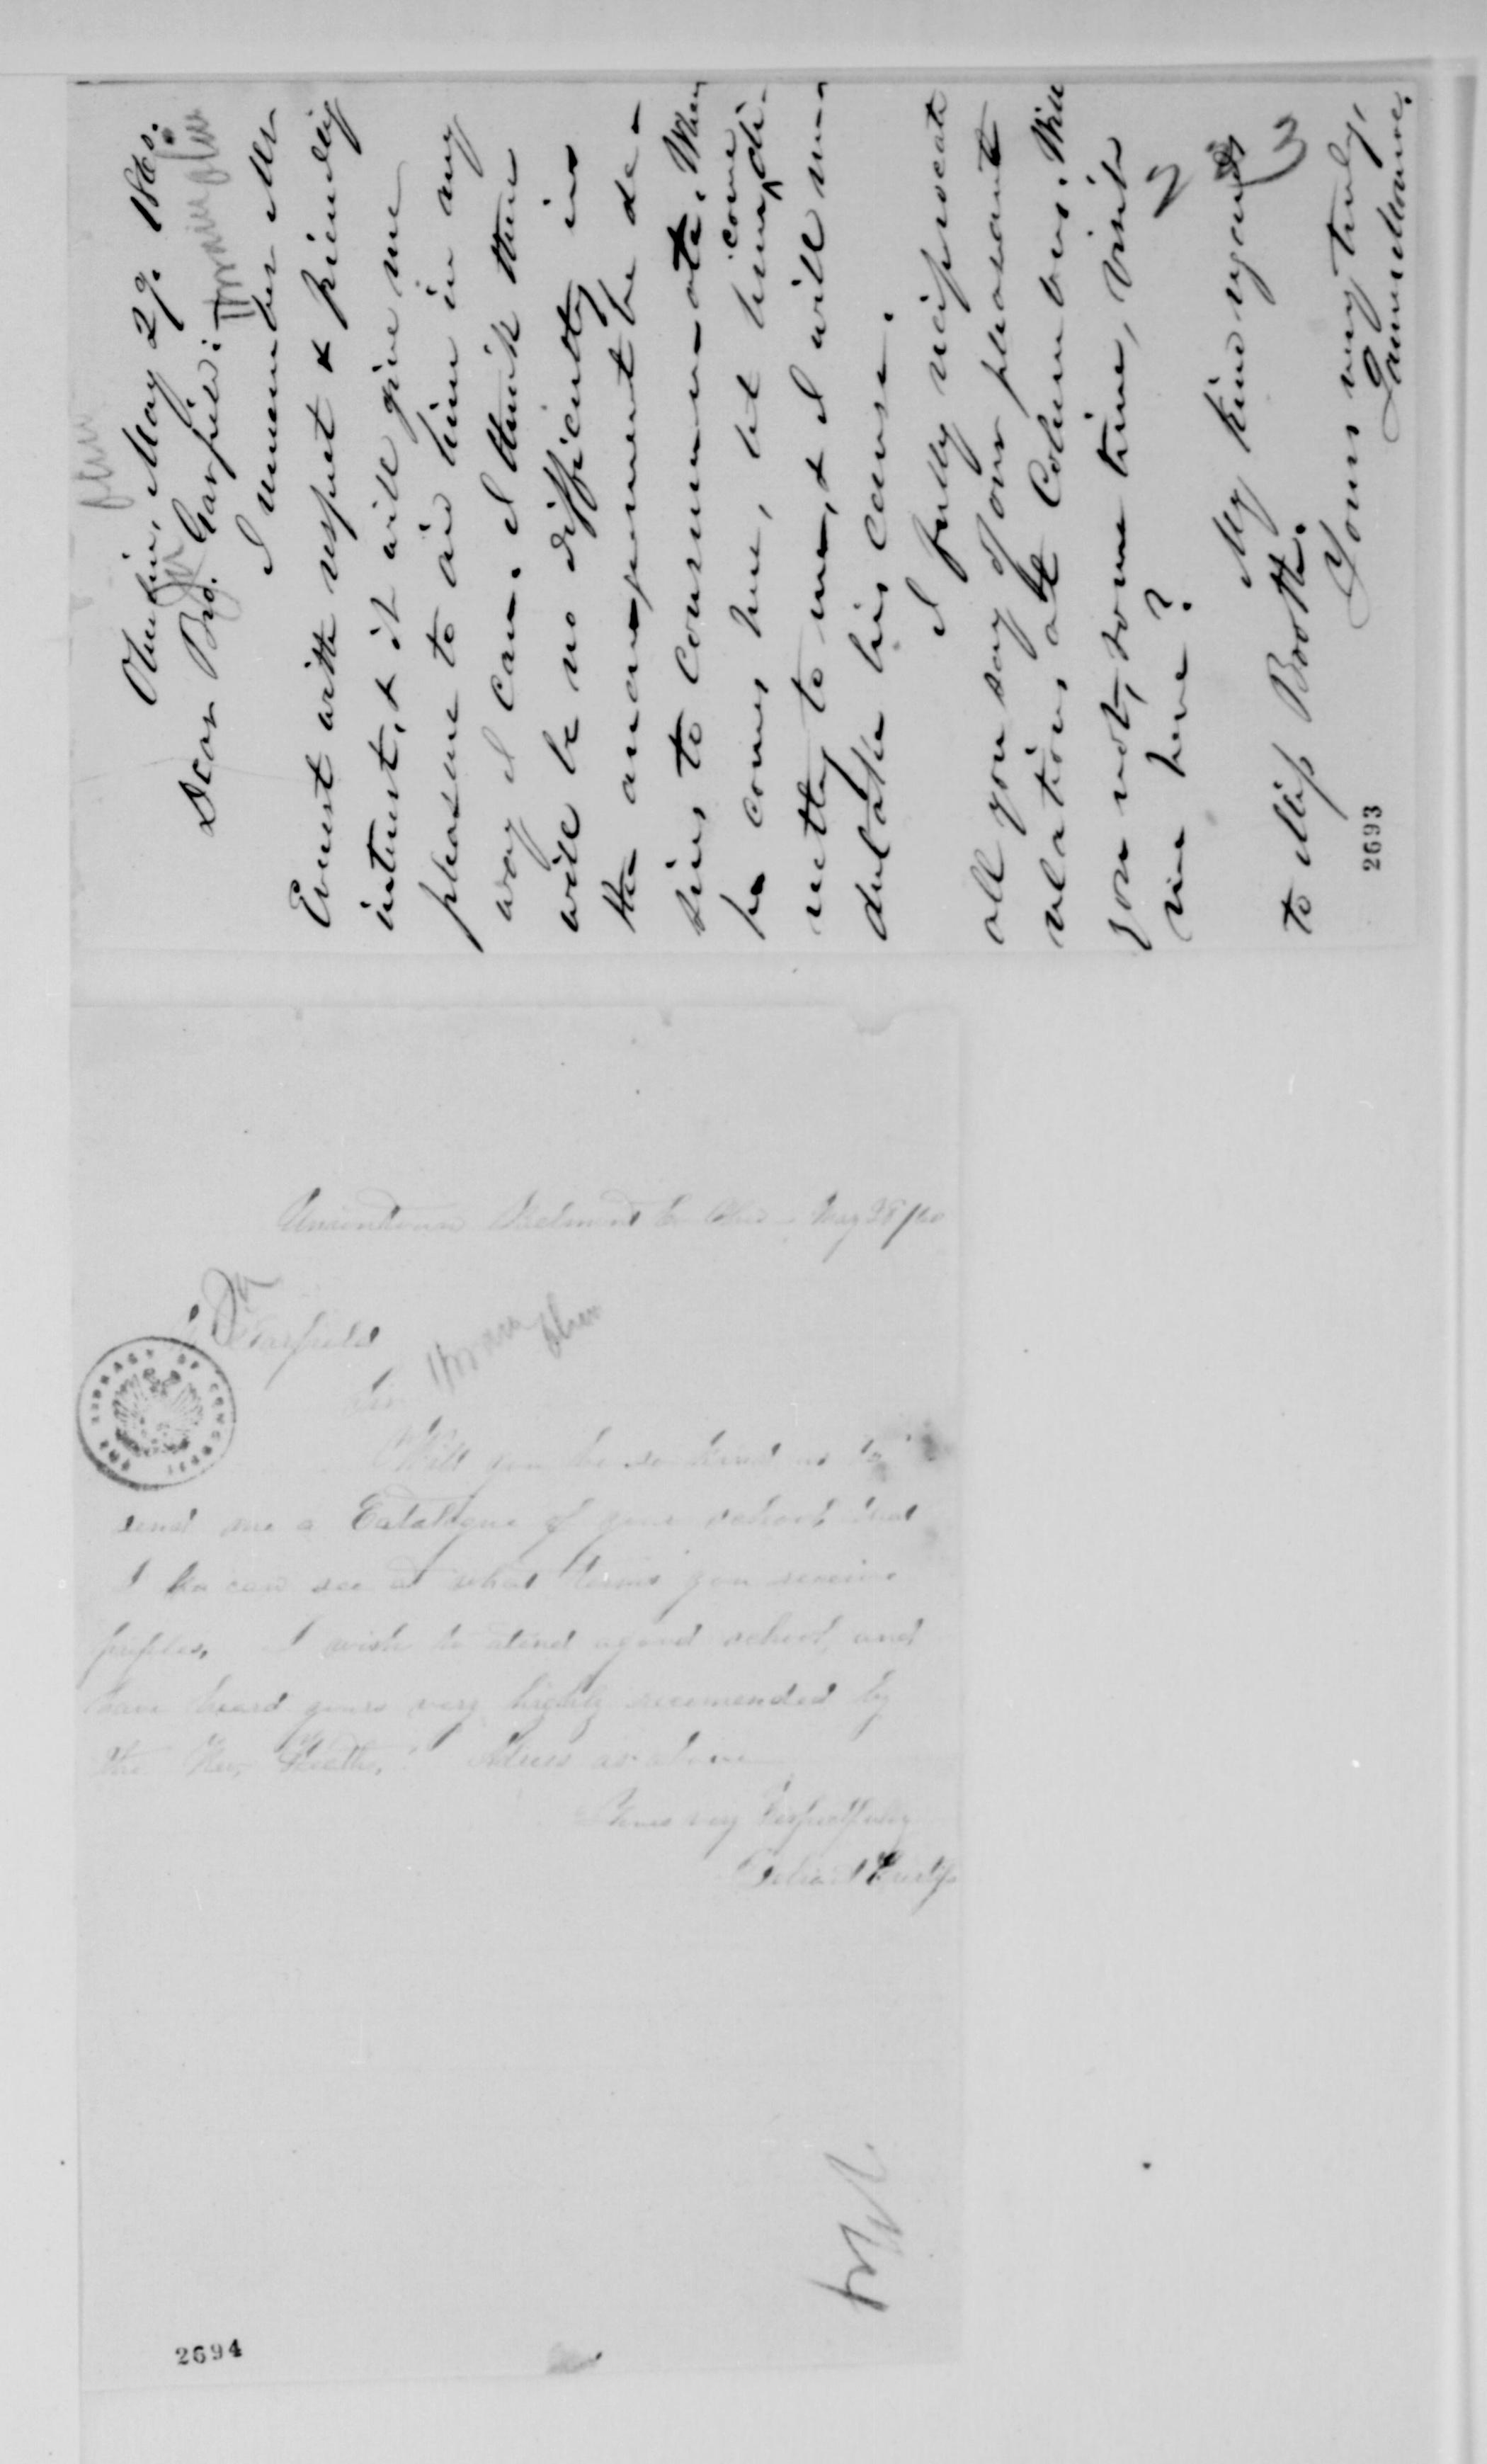 Oberlin, May 29. 1860.
Dear Bro. Garfield:
I remember Mr
Everest with respect & friendly
interest, & it will give me
pleasure to aid him in any
way I can. I think there
will be no difficulty in
the arrangement he de-
sires to consummate. When
he comes here, let him come di-
rectly to me, & I will un-
dertake his cause.
I fully reciprocate
all you say of our pleasant
relations at Columbus. Will
you not, some time, visit
me here?
My kind regards
to Miss Booth.
Yours very truly,
James Monroe.
2693
Uniontown Belmont Co Ohio May 28/60
Garfield
Sir
Hiram
Ohio
Will you be so kind as to
send me a Catalogue of your school that
I can see at what terms you receive
pupples, I wish to atend a good school, and
have heard yours very highly recomended by
the Adress as above
Yours very Respectfully
THE LIBRARY OF CONGRESS
2694